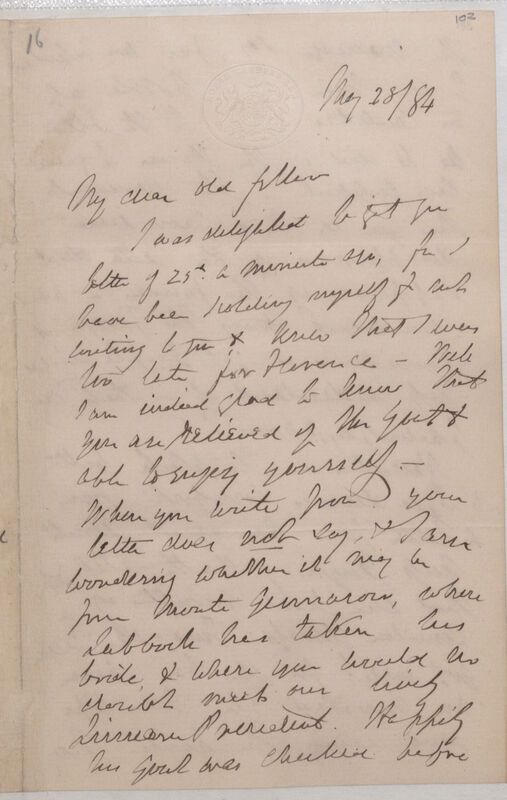 16
102
May 28/84
My dear old fellow
I was delighted to get yr
letter of 25th a minute ago, for I
have been scolding myself for not
writing to you & knew that I was
too late for Florence — Well
I am indeed glad to know that
you are relieved of the Gout &
able to enjoy yourself. —
When you write from your
letter does not say, & I am
wondering whether it may be
from Monte Generoso, where
Lubbock has taken his
bride, & where you would no
doubt meet our lively
Linnean President. Happily
his gout was checked before